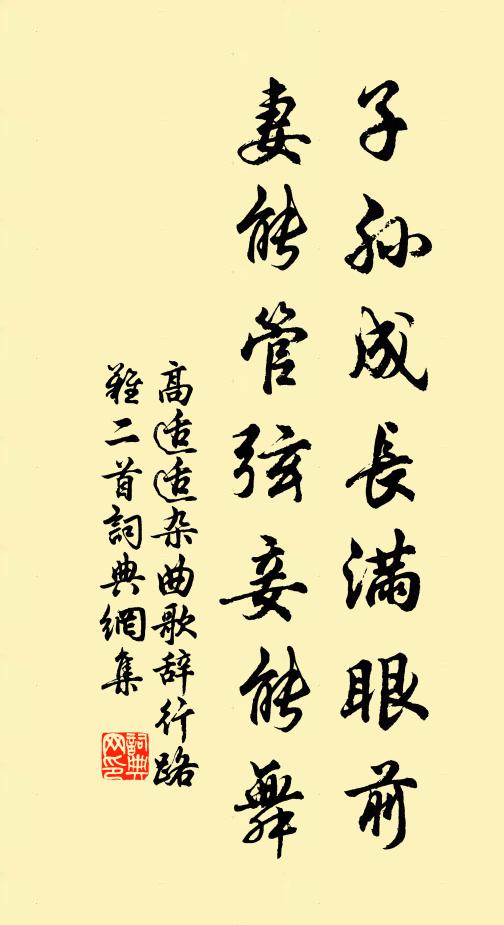 子孫成長滿眼前
妻能管弦妾能舞
高适适杂曲歌辞行路
難二首詞典網集
詞典
网印